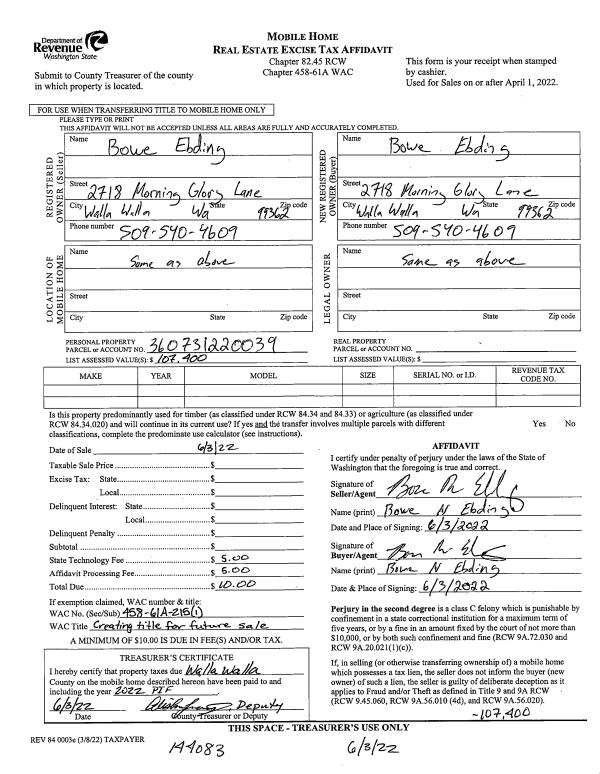 Department of
Revenue
Washington State
MOBILE HOME
REAL ESTATE EXCISE TAX AFFIDAVIT
Chapter 82.45 RCW
Chapter 458-61A WAC
Submit to County Treasurer of the county
in which property is located.
This form is your receipt when stamped
by cashier.
Used for Sales on or after April 1, 2022.
FOR USE WHEN TRANSFERRING TITLE TO MOBILE HOME ONLY
PLEASE TYPE OR PRINT
THIS AFFIDAVIT WILL NOT BE ACCEPTED UNLESS ALL AREAS ARE FULLY AND ACCURATELY COMPLETED.
REGISTERED OWNER (Seller)
Name Bowe Ebding
Street 2718 Morning Glory Lane
City Walla Walla State Wa Zip code 99362
Phone number 509-540-4609
NEW REGISTERED OWNER (Buyer)
Name Bowe Ebding
Street 2718 Morning Glory Lane
City Walla Walla State Wa Zip code 99362
Phone number 509-540-4609
LOCATION OF MOBILE HOME
Name Same as above
Street
City State Zip code
LEGAL OWNER
Name Same as above
Street
City State Zip code
PERSONAL PROPERTY
PARCEL or ACCOUNT NO. 360731220039
LIST ASSESSED VALUE(S): $ 107,400
REAL PROPERTY
PARCEL or ACCOUNT NO.
LIST ASSESSED VALUE(S): $
MAKE YEAR MODEL SIZE SERIAL NO. or I.D. REVENUE TAX CODE NO.
Is this property predominantly used for timber (as classified under RCW 84.34 and 84.33) or agriculture (as classified under
RCW 84.34.020) and will continue in its current use? If yes and the transfer involves multiple parcels with different
classifications, complete the predominate use calculator (see instructions). Yes No
Date of Sale 6/3/22
Taxable Sale Price $
Excise Tax: State $
Local $
Delinquent Interest: State $
Local $
Delinquent Penalty $
Subtotal $
State Technology Fee $ 5.00
Affidavit Processing Fee $ 5.00
Total Due $ 10.00
If exemption claimed, WAC number & title:
WAC No. (Sec/Sub) 458-61A-215(1)
WAC Title Creating title for future sale
A MINIMUM OF $10.00 IS DUE IN FEE(S) AND/OR TAX.
TREASURER'S CERTIFICATE
I hereby certify that property taxes due Walla Walla
County on the mobile home described hereon have been paid to and
including the year 2022 PIF
6/3/22 Deputy
Date County Treasurer or Deputy
AFFIDAVIT
I certify under penalty of perjury under the laws of the State of
Washington that the foregoing is true and correct.
Signature of
Seller/Agent
Name (print) Bowe N Ebding
Date and Place of Signing: 6/3/2022
Signature of
Buyer/Agent
Name (print) Bowe N Ebding
Date & Place of Signing: 6/3/2022
Perjury in the second degree is a class C felony which is punishable by
confinement in a state correctional institution for a maximum term of
five years, or by a fine in an amount fixed by the court of not more than
$10,000, or by both such confinement and fine (RCW 9A.72.030 and
RCW 9A.20.021(1)(c)).
If, in selling (or otherwise transferring ownership of) a mobile home
which possesses a tax lien, the seller does not inform the buyer (new
owner) of such a lien, the seller is guilty of deliberate deception as it
applies to Fraud and/or Theft as defined in Title 9 and 9A RCW
(RCW 9.45.060, RCW 9A.56.010 (4d), and RCW 9A.56.020).
-107,400
THIS SPACE - TREASURER'S USE ONLY
REV 84 0003e (3/8/22) TAXPAYER
144083
6/3/22